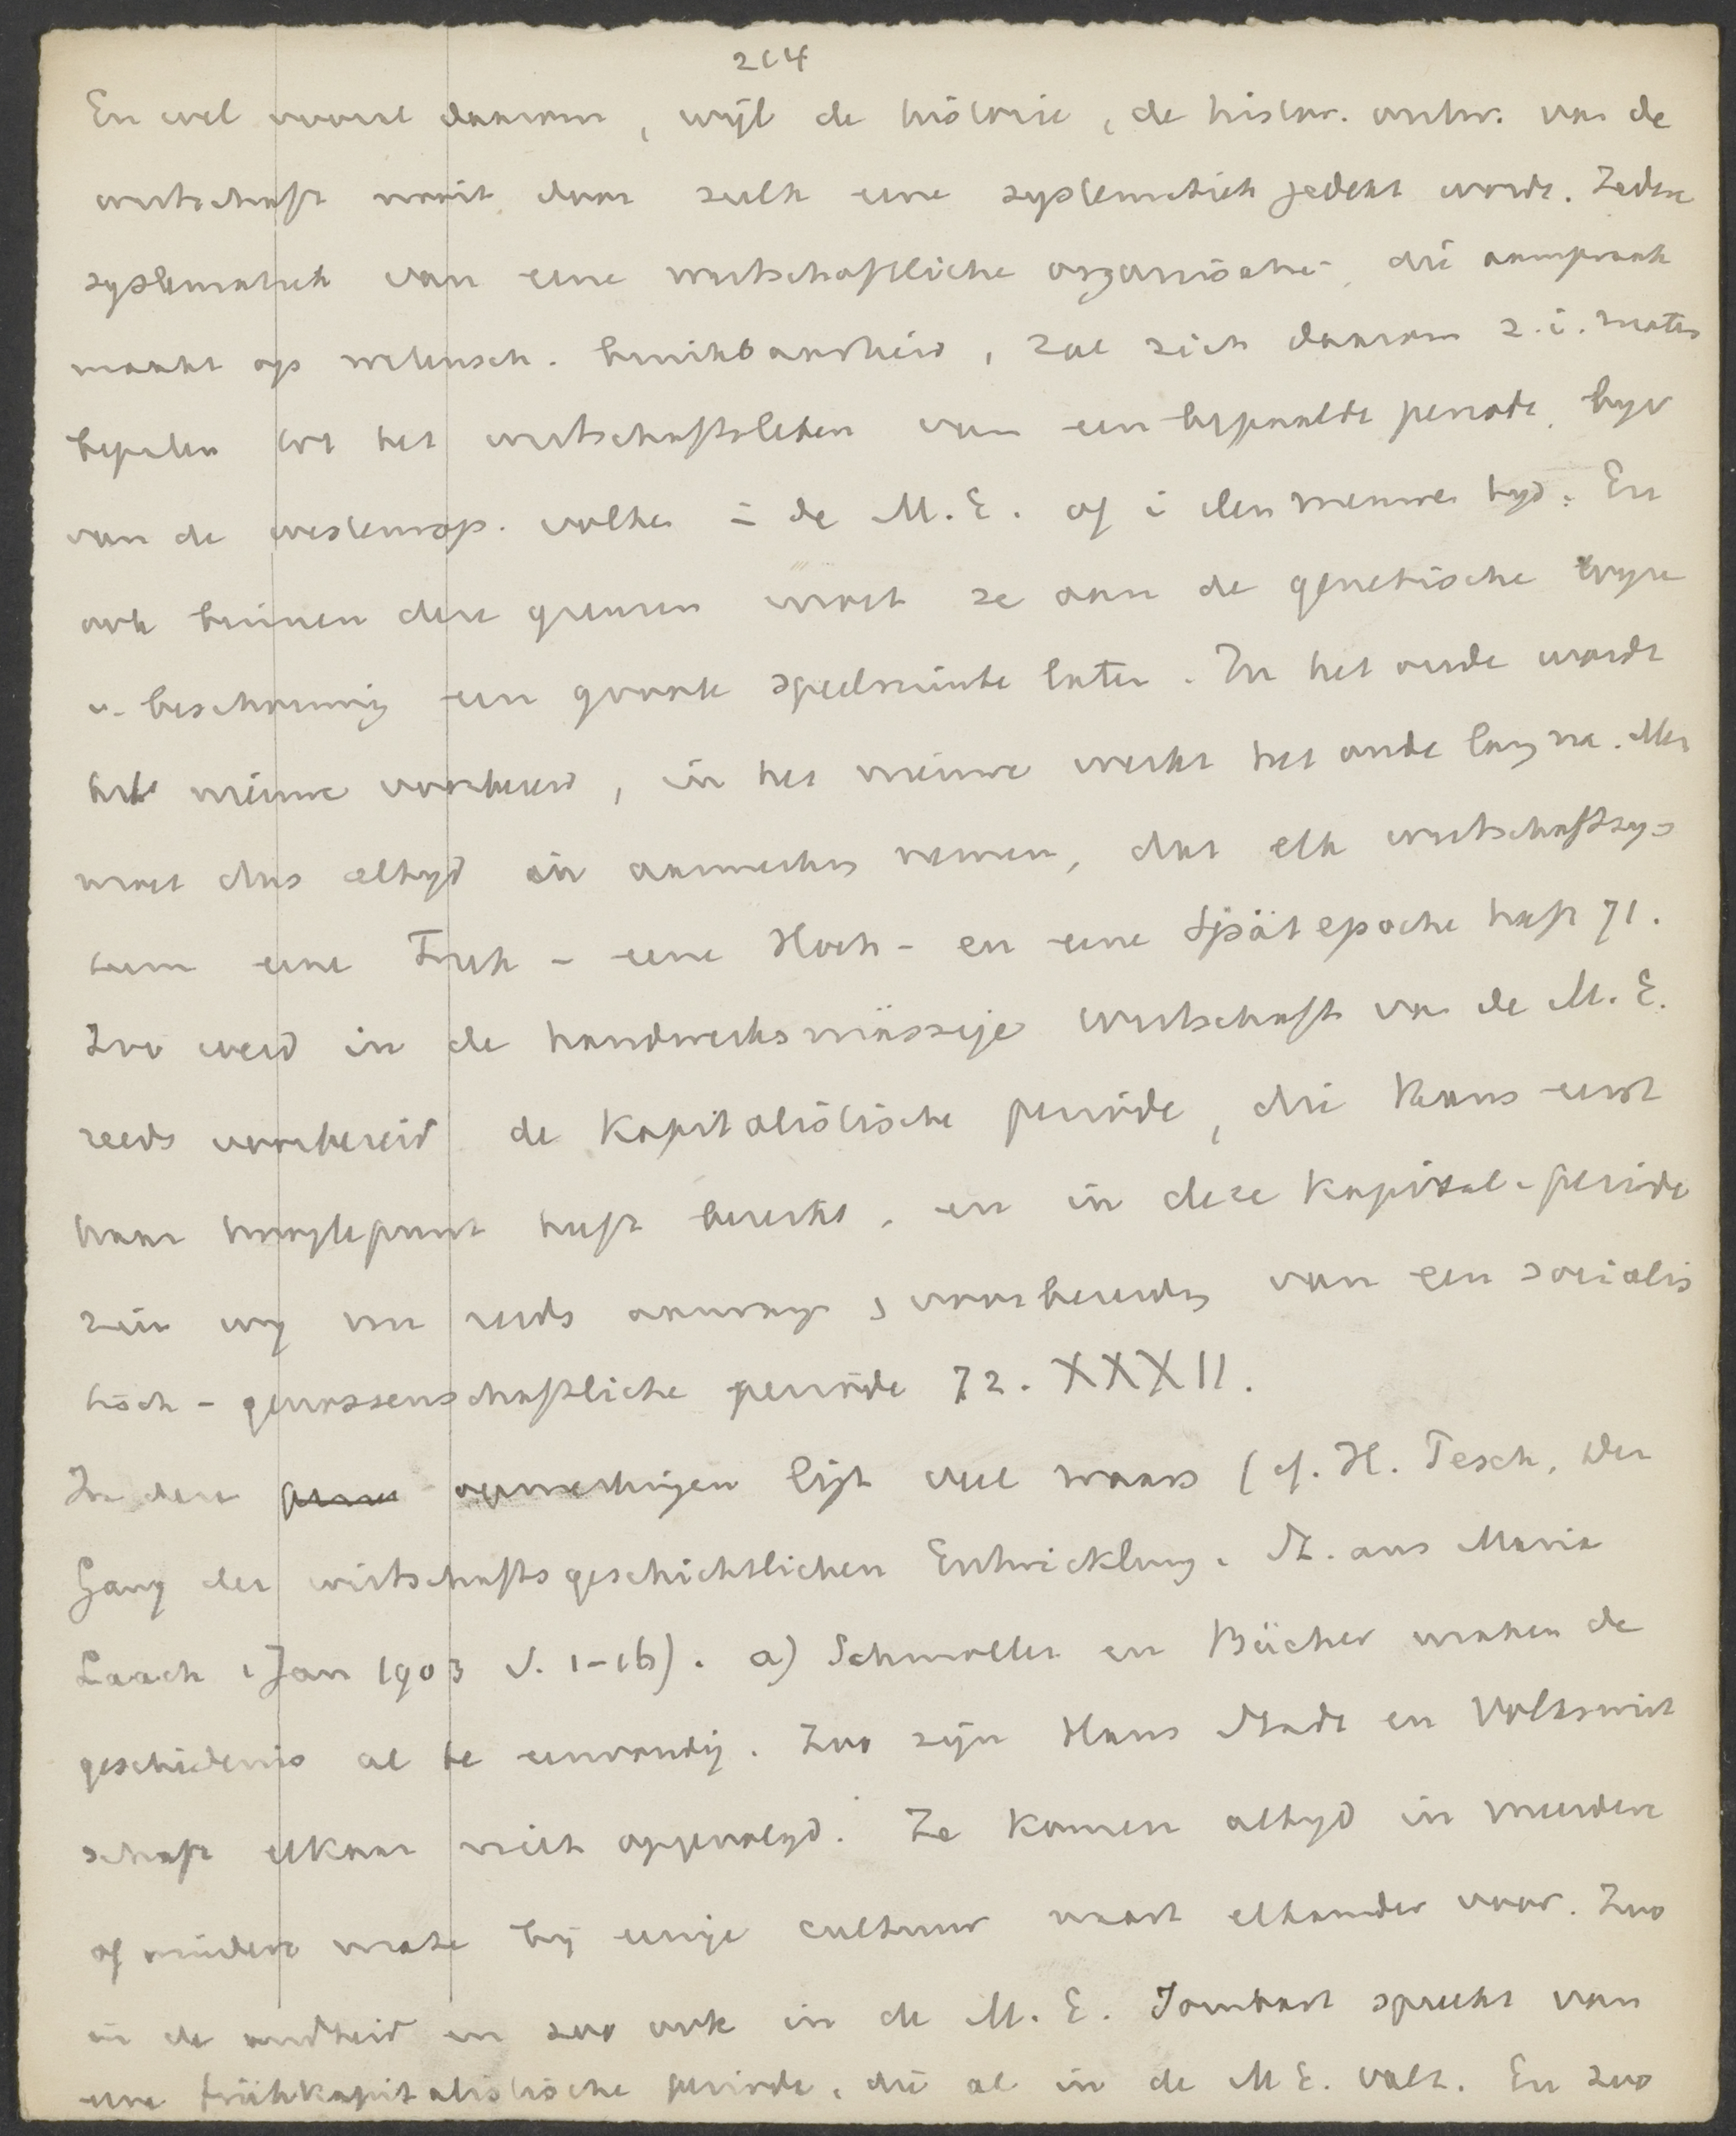 204
En wel vooral daarom, wijl de historie, de histor. ontw. van de
wirtschaft nooit door zulk eene systematiek gedekt wordt. Iedere
systematiek van eene wirtschaftliche organisatie, die aanspraak
maakt op wetensch. bruikbaarheid, zal zich daarom z.i. moeten
bepalen tot het wirtschaftsleben van een bepaalde periode, bijv
van de westeurop. volken in de M.E. of i den nieuwen tyd. En
ook binnen deze grenzen moet ze aan de genetische wijze
v. beschouwing een groote speelruimte laten. In het oude wordt
het nieuwe voorbereid, in het nieuwe werkt het oude lang na. Men
moet dus altyd in aanmerking nemen, dat elk wirtschaftsys-
teem eene Früh- eene Hoch- en eene Spätepoche heeft 71.
Zoo werd in de handwerksmässige wirtschaft van de M.E.
reeds voorbereid de Kapitalistische periode, die thans eerst
haar hoogtepunt heeft bereikt, en in deze Kapital-periode
zien wij nu reeds aanvang, voorbereiding van een socialis
tisch-genossenschaftliche periode 72. XXXII.
In deze opmerkingen ligt veel waars (cf. H. Pesch, Der
Gang der wirtschaftsgeschichtlichen Entwicklung. St. aus Maria
Laach 1 Jan 1903 S. 1-16). a) Schmoller en Bücher maken de
geschiedenis al te eenvoudig. Zoo zijn Haus Stadt en Volkswirt
schaft elkaar niet opgevolgd. Ze komen altyd in meerdere
of mindere mate bij eenige cultuur naast elkander voor. Zoo
in de oudheid en zoo ook in de M.E. Sombart spreekt van
eene frühkapitalistische periode, die al in de M.E. valt. En zoo